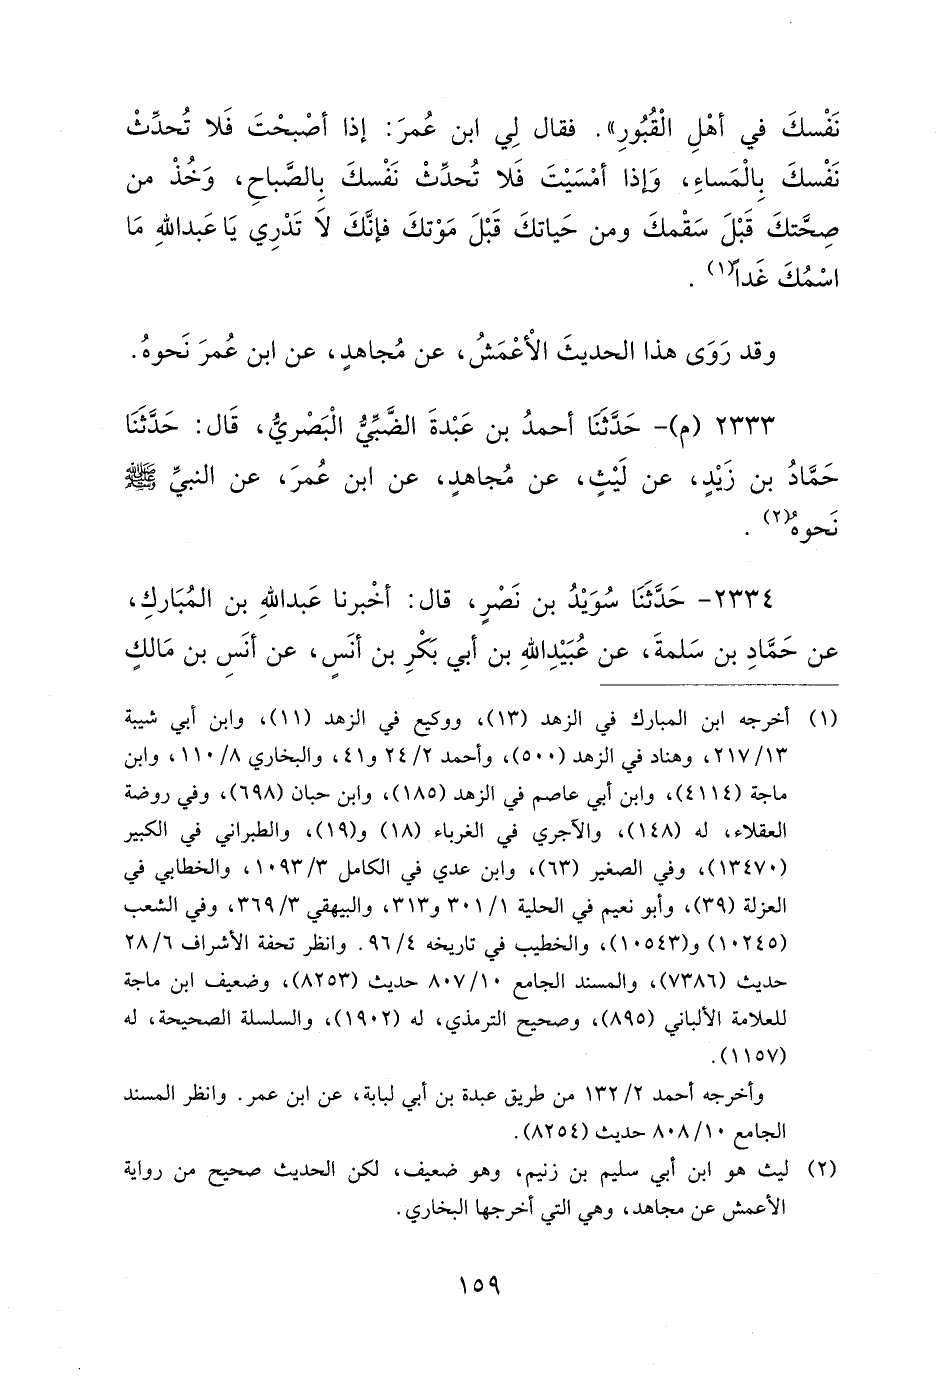 نَفْسكَ في أهْلِ الْقُبُورِ». فقال لِي ابن عُمرَ: إذا أصْبحْتَ فَلا تُحدِّثْ
نَفْسكَ بِالْمَساءِ، وَإذا أمْسَيْتَ فَلا تُحدِّثْ نَفْسكَ بِالصَّباحِ، وَخُذْ من
صِحَّتكَ قَبْلَ سَقْمكَ ومن حَياتكَ قَبْلَ مَوْتكَ فإنَّكَ لاَ تَدْرِي يَا عَبدالله مَا
اسْمُكَ غَداً(١) .
وقد رَوَى هذا الحديثَ الْأعْمَشُ، عن مُجاهدٍ، عن ابن عُمرَ نَحوهُ.
٢٣٣٣ (م)- حَدَّثَنَا أحمدُ بن عَبْدةَ الضَّبِّيُّ الْبَصْريُّ، قَال: حَدَّثَنَا
حَمَّادُ بن زَيْدٍ، عن لَيْثٍ، عن مُجاهدٍ، عن ابن عُمرَ، عن النبيِّ ﷺ
نَحوهُ(٢) .
٢٣٣٤- حَدَّثَنَا سُوَيْدُ بن نَصْرٍ، قال: أخْبرنا عَبدالله بن المُبَاركِ،
عن حَمَّادِ بن سَلمةَ، عن عُبَيْدِاللهِ بن أبي بَكْرِ بن أنَسٍ، عن أنَسِ بن مَالكٍ
(١) أخرجه ابن المبارك في الزهد (١٣)، ووكيع في الزهد (١١)، وابن أبي شيبة
٢١٧/١٣، وهناد في الزهد (٥٠٠)، وأحمد ٢٤/٢ و٤١، والبخاري ١١٠/٨، وابن
ماجة (٤١١٤)، وابن أبي عاصم في الزهد (١٨٥)، وابن حبان (٦٩٨)، وفي روضة
العقلاء، له (١٤٨)، والآجري في الغرباء (١٨) و(١٩)، والطبراني في الكبير
(١٣٤٧٠)، وفي الصغير (٦٣)، وابن عدي في الكامل ١٠٩٣/٣، والخطابي في
العزلة (٣٩)، وأبو نعيم في الحلية ٣٠١/١ و٣١٣، والبيهقي ٣٦٩/٣، وفي الشعب
(١٠٢٤٥) و(١٠٥٤٣)، والخطيب في تاريخه ٩٦/٤. وانظر تحفة الأشراف ٢٨/٦
حديث (٧٣٨٦)، والمسند الجامع ٨٠٧/١٠ حديث (٨٢٥٣)، وضعيف ابن ماجة
للعلامة الألباني (٨٩٥)، وصحيح الترمذي، له (١٩٠٢)، والسلسلة الصحيحة، له
(١١٥٧).
وأخرجه أحمد ١٣٢/٢ من طريق عبدة بن أبي لبابة، عن ابن عمر. وانظر المسند
الجامع ٨٠٨/١٠ حديث (٨٢٥٤).
(٢) ليث هو ابن أبي سليم بن زنيم، وهو ضعيف، لكن الحديث صحيح من رواية
الأعمش عن مجاهد، وهي التي أخرجها البخاري.
١٥٩